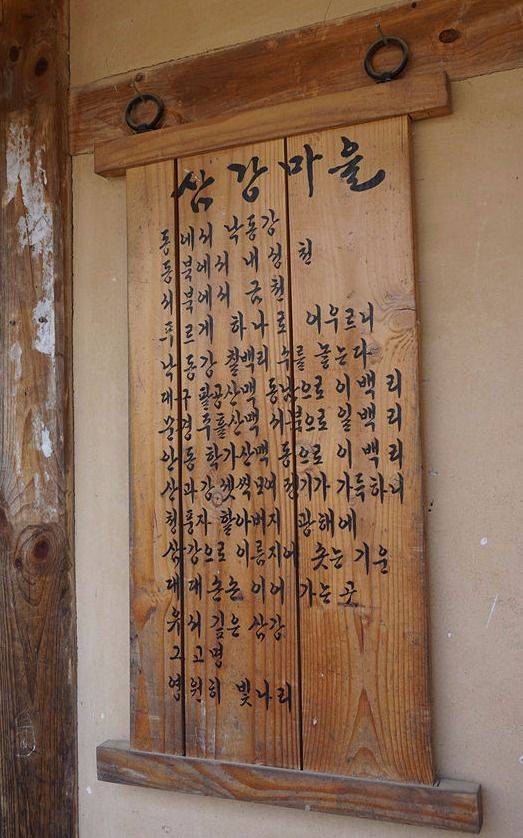 삼강마을
동에서 낙동강
동북에서 내성천
서북에서 금천
푸르게 하나로 어우르니
낙동강 칠백리 수를 놓는다
대구 팔공산맥 동남으로 이백리
문경 주흘산맥 서북으로 일백리
안동 학가산맥 동으로 이백리
산과 강 셋씩 모여 정기가 가득하니
청풍자 할아버지 광해에
삼강으로 이름지어 솟는 기운
대대손손 이어 가는 곳
유서 깊은 삼강
그 고명
영원히 빛나리